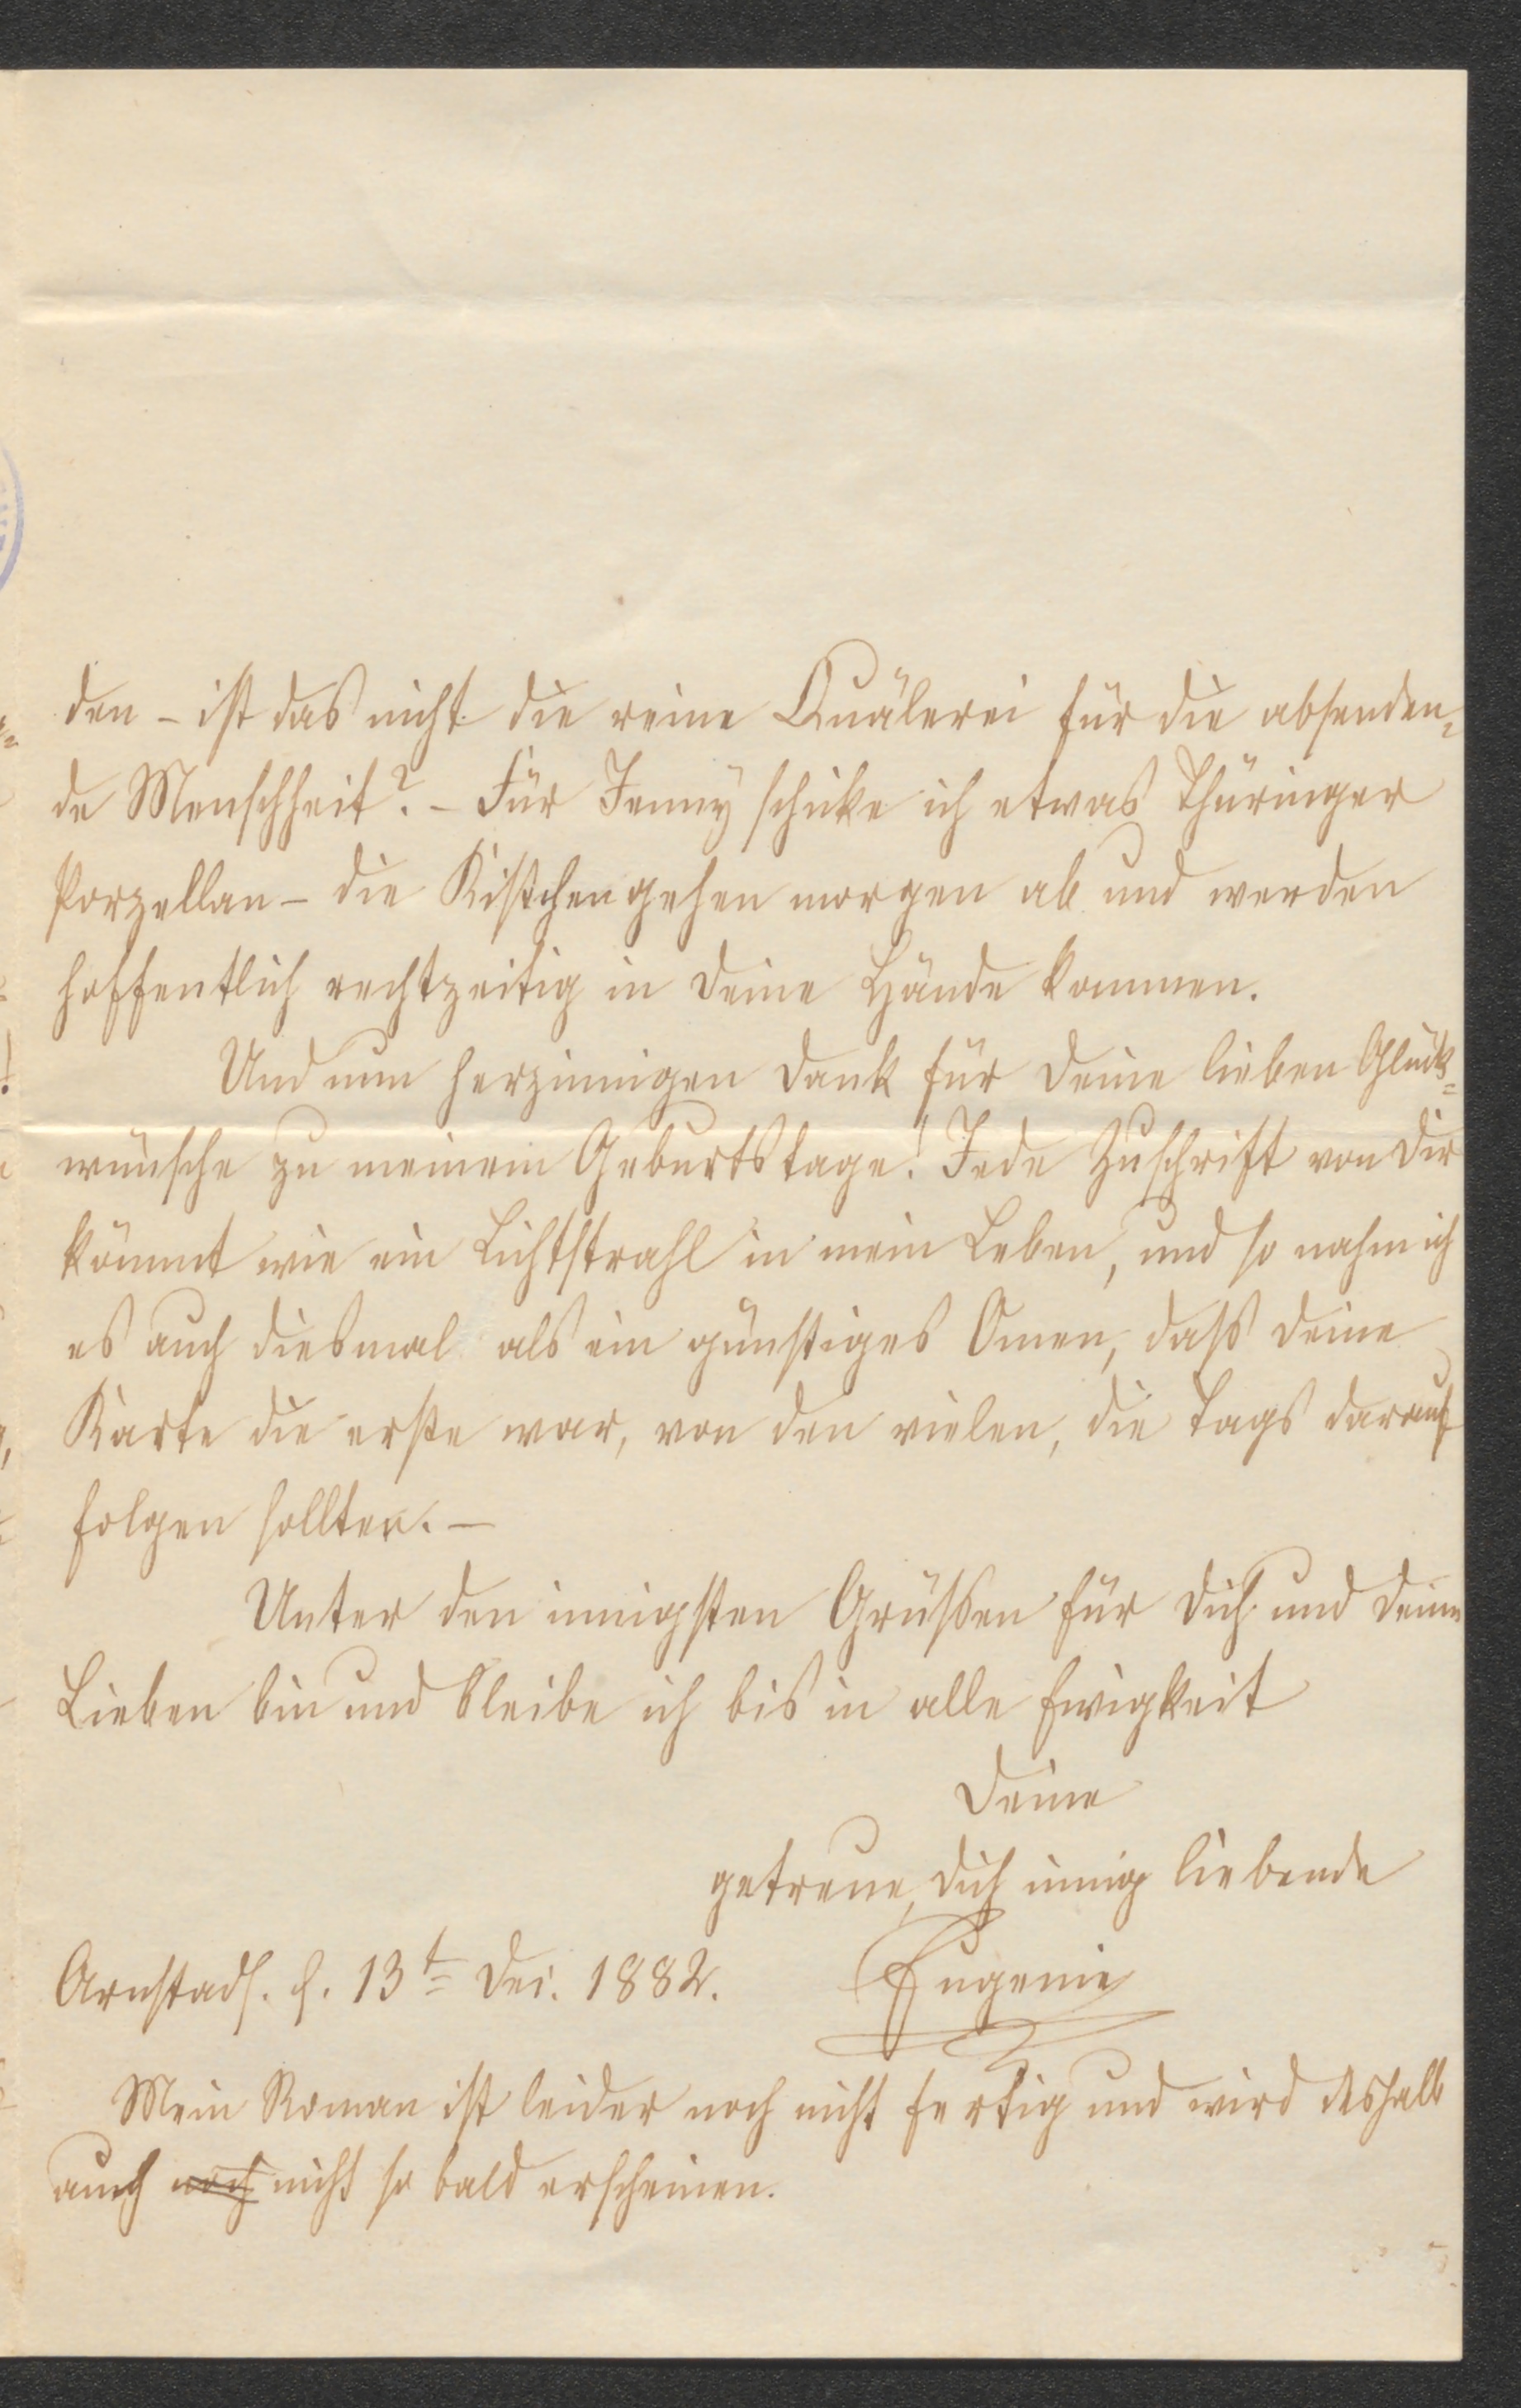 den – ist das nicht die reine Quälerei für die absenden=
de Menschheit? – Für Jenny schicke ich etwas Thüringer
Porzellan – die Kistchen gehen morgen ab und werden
hoffentlich rechtzeitig in Deine Hände kommen.
Und nun herzinnigen Dank für Deine lieben Glück=
wünsche zu meinem Geburtstage! Jede Zuschrift von Dir
kömmt wie ein Lichtstrahl in mein Leben, und so nahm ich
es auch diesmal als ein günstiges Omen, daß Deine
Karte die erste war, von den vielen, die Tags darauf
folgen sollten. –
Unter den innigsten Grüßen für Dich und Deine
Lieben bin und bleibe ich bis in alle Ewigkeit
Deine
getreue, Dich innig liebende
Arnstadt. d. 13t Dec. 1882. Eugenie
Mein Roman ist leider noch nicht fertig und wird deshalb
auch noch nicht so bald erscheinen.